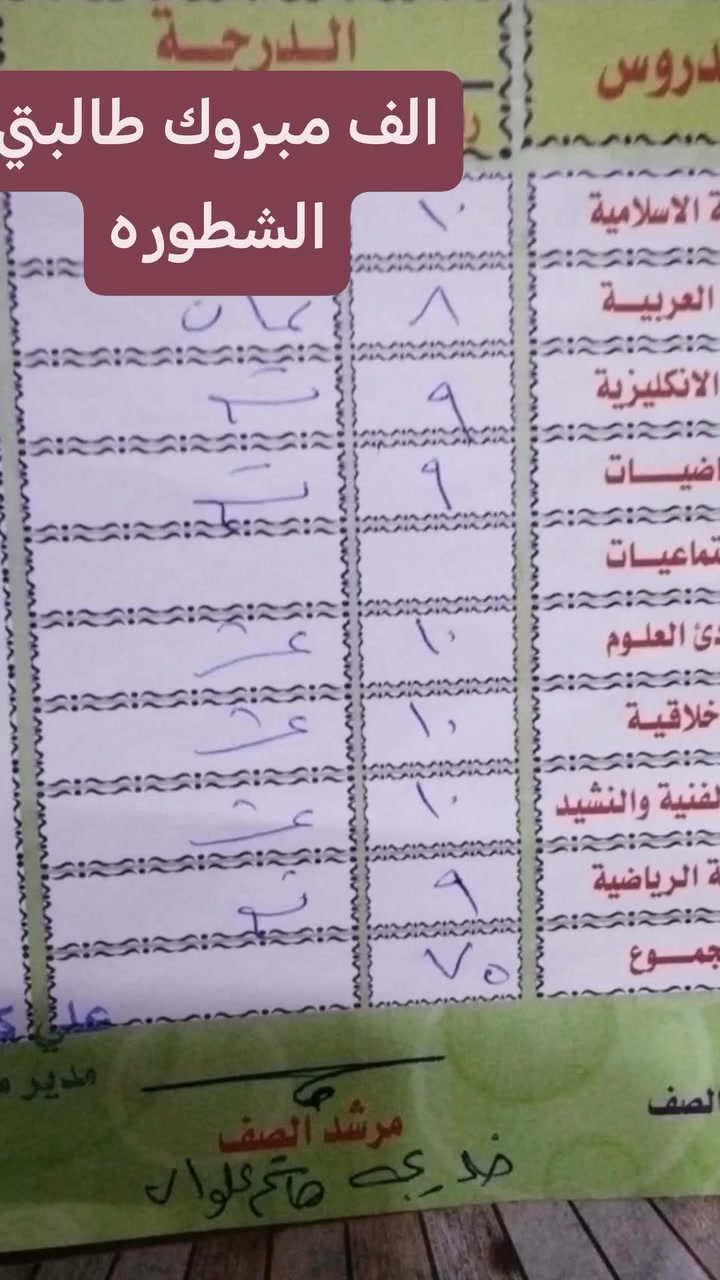 الدرجة
دروس
الف مبروك طالبتي
الشطوره
ة الاسلامية ١٠
العربية ٨ ثمان
الانكليزية ٩ تسع
اضيات ٩ تسع
تماعيات
دئ العلوم ١٠ عشر
خلاقية ١٠ عشر
لفنية والنشيد ١٠ عشر
ة الرياضية ٩ تسع
جموع ٧٥
علي
مدير
الصف
مرشد الصف
خديجة هاشم علوان